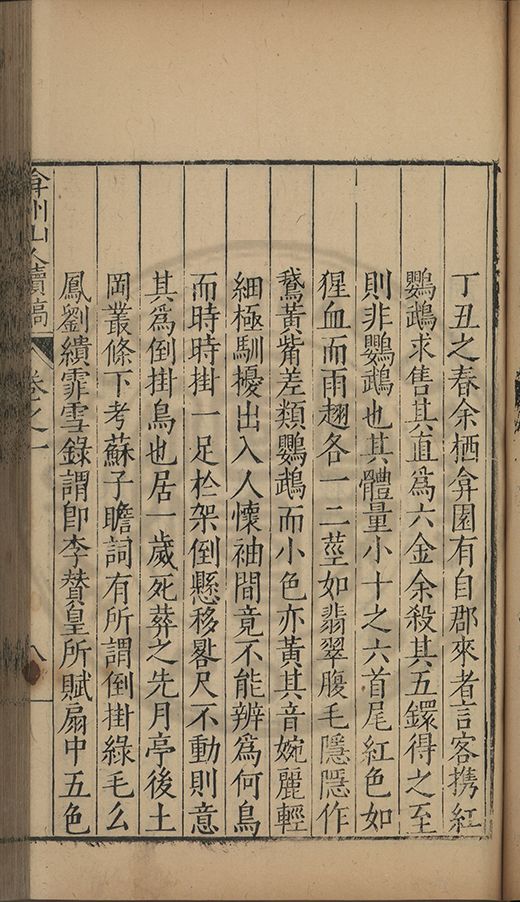 丁丑之春余栖弇園有自郡來者言客携紅
鸚鵡求售其直爲六金余殺其五鐶得之至
則非鸚鵡也其體量小十之六首尾紅色如
猩血而雨翅各一二莖如翡翠腹毛隱隱作
鵞黃觜差類鸚鵡而小色亦黃其音婉麗輕
細極馴擾出入人懷袖間竟不能辨爲何鳥
而時時掛一足於架倒懸移晷尺不動則意
其爲倒掛鳥也居一歲死葬之先月亭後土
岡叢條下考蘇子瞻詞有所謂倒掛綠毛么
鳳劉績霏雪錄謂卽李贊皇所賦扇中五色
弇州山人續稿
卷之一
八